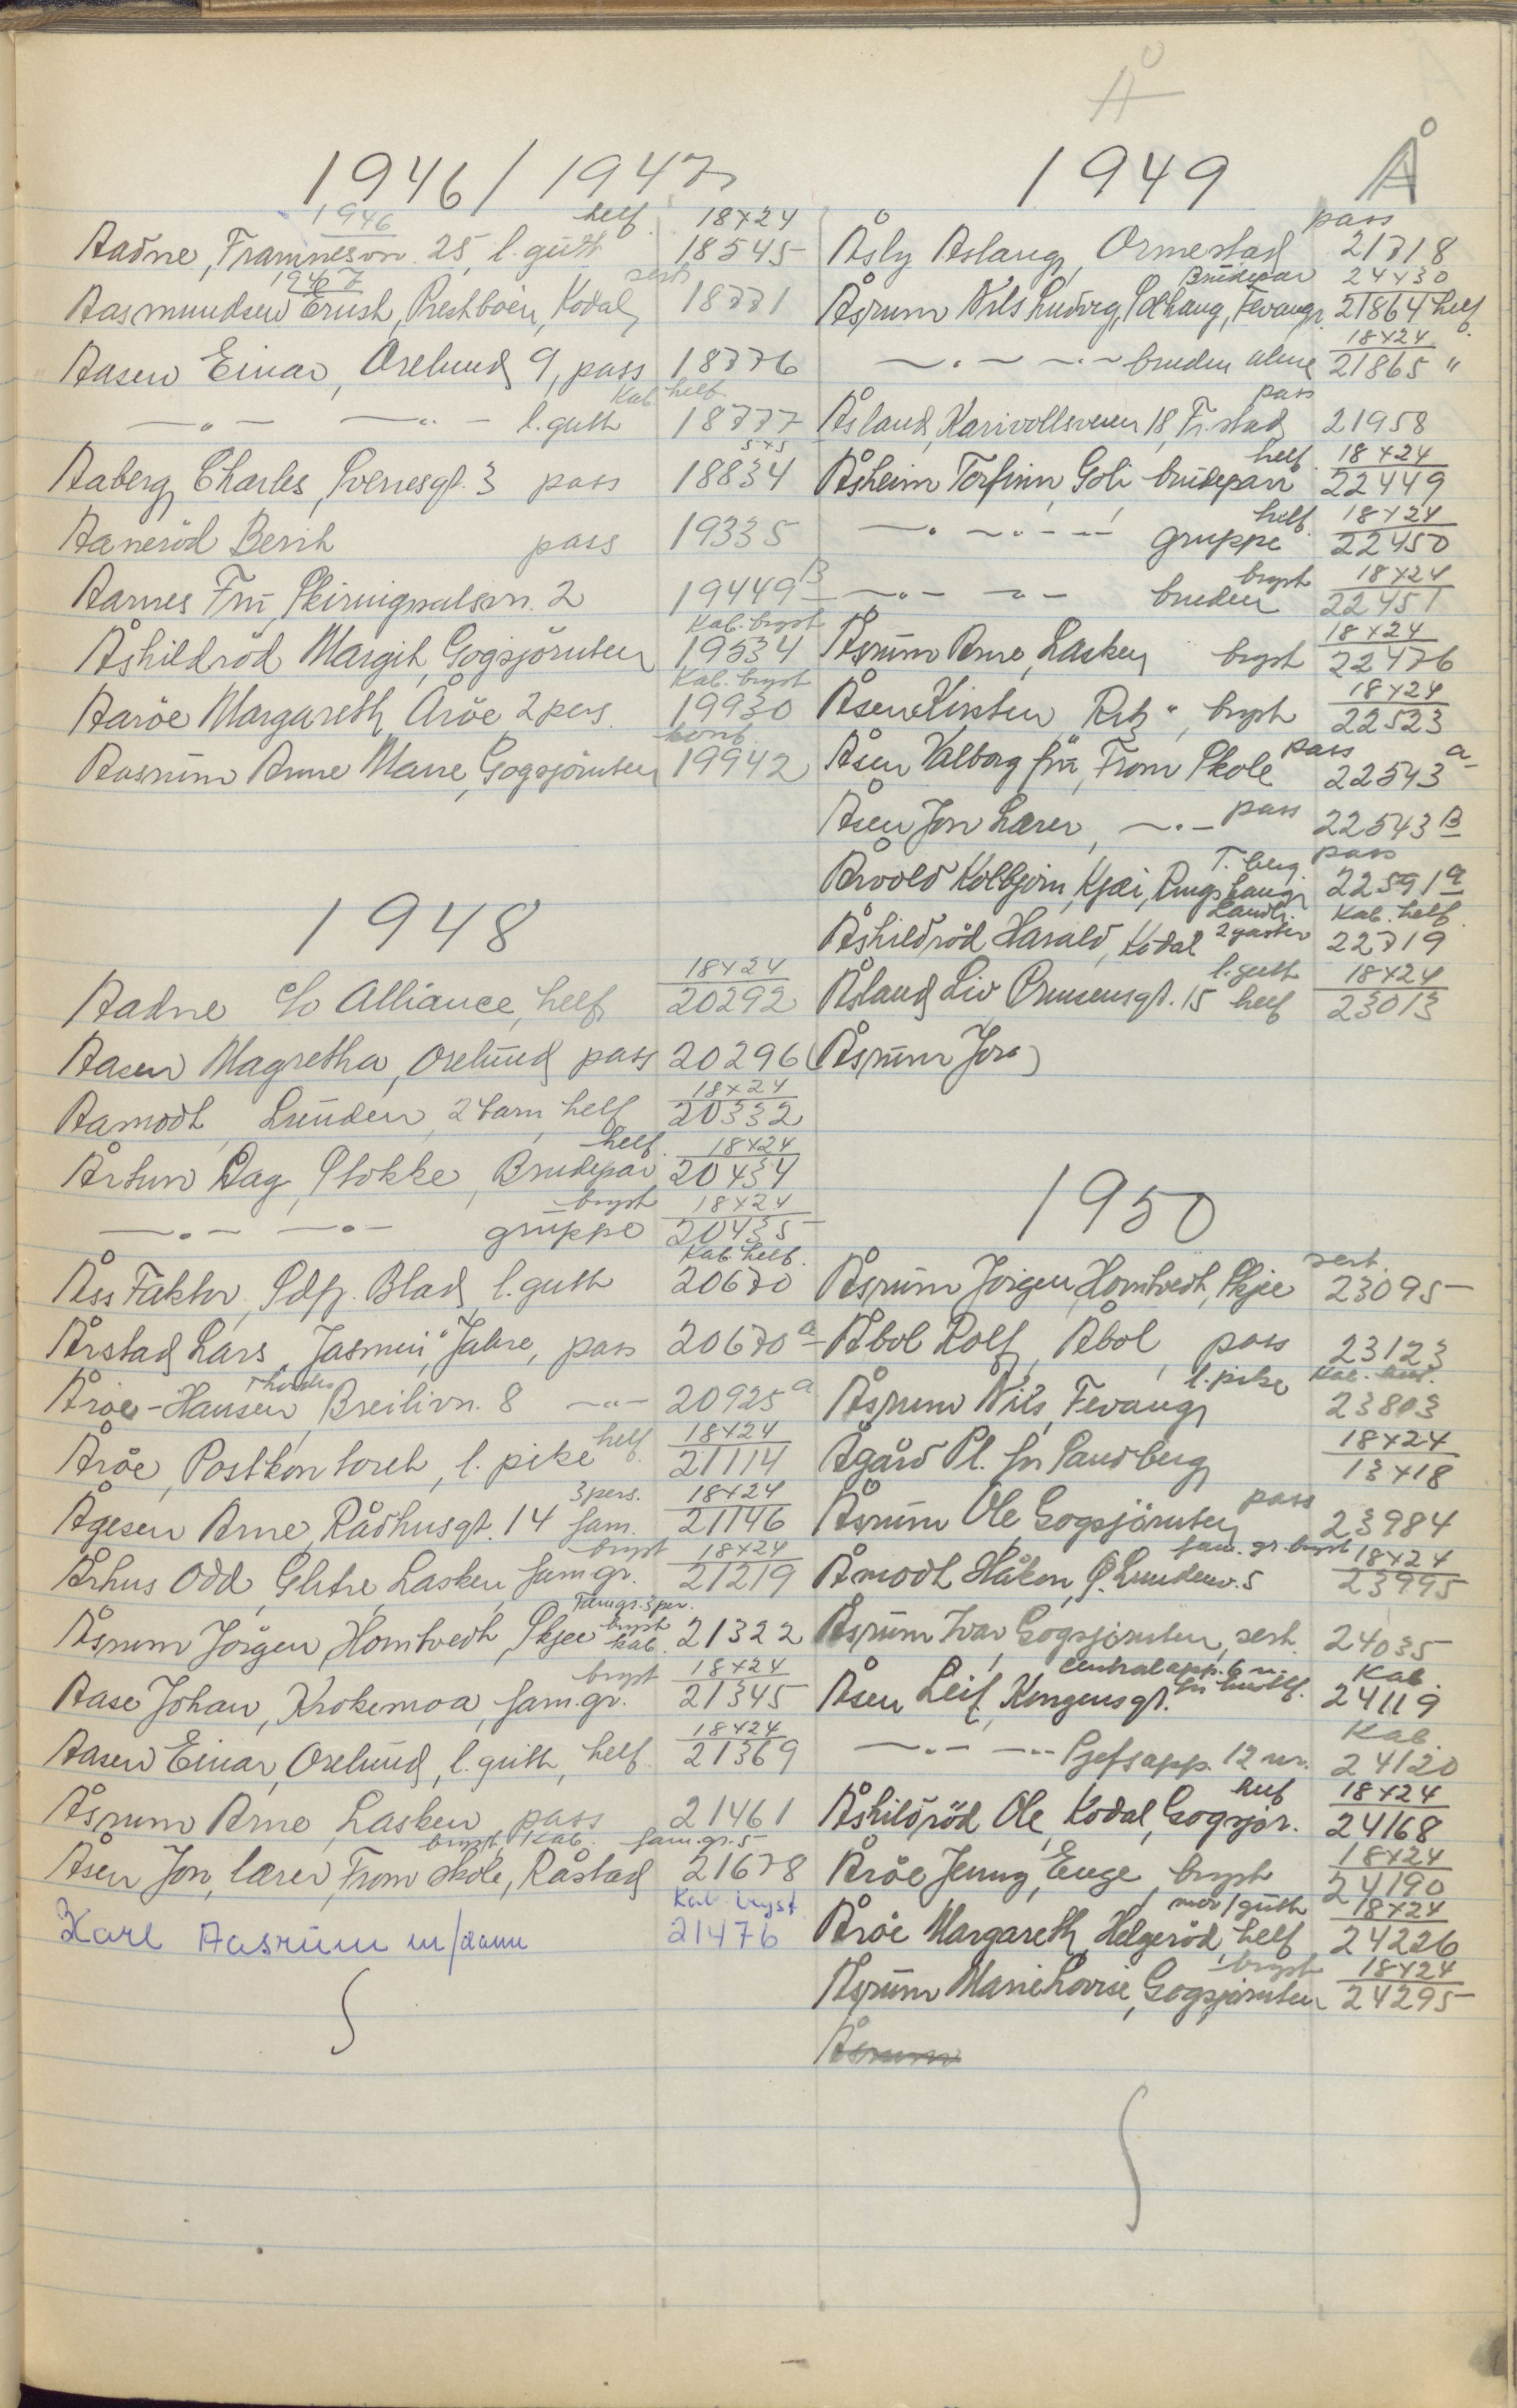 Å
1946/1947
1946 helf. 18x24
Aadne, Framnesvn. 25, l. gutt 18545
1947 sert.
Aasmundsen Ernst, Prestbøen, Kodal, 18771
Aasen Einar, Orelund 9, pass 18776
Kab. helf.
—"— —"— l. gutt 18777
5x5
Aaberg Charles, Sverresgt. 3 pass 18834
Aanerød Berit pass 19335
Aarnes Fru, Skiringssalsvn. 2 19449 B
Kab. bryst
Åshildrød Margit, Gogsjøruten 19534
Kab. bryst
Aarøe Margareth, Årøe 2 pers. 19930
konf.
Aasrum Anne Marie, Gogsjøruten 19942
1948
18x24
Aadne c/o Alliance, helf. 20292
Aasen Magretha, Orelund pass 20296
18x24
Aamodt, Lunden, 2 barn, helf 20332
helf. 18x24
Årtun Dag, Stokke, Brudepar 20434
bryst 18x24
—"— —"— gruppe 20435
Kab. helf.
Åss Faktor, Sdfj. Blad, l. gutt 20670
Årstad Lars, "Jasmin", Jahre, pass 20670 a
Thordis
Årøe-Hansen, Breilivn. 8 —"— 20925 a
helf. 18x24
Årøe, Postkontoret, l. pike 21114
3 pers. 18x24
Ågesen Arne, Rådhusgt. 14 fam. 21146
bryst 18x24
Århus Odd, Glitre, Lasken, fam.gr. 21219
Famgr. 3 per.
bryst
Åsrum Jörgen, Homtvedt, Skjee kab. 21322
bryst 18x24
Aase Johan, Krokemoa, fam.gr. 21345
18x24
Aasen Einar, Orelund, l. gutt, helf. 21369
Åsrum Arne, Lasken, pass 21461
bryst, Kab. fam.gr. 5
Åsen Jon, lærer, From skole, Råstad 21678
Kab. bryst
Karl Aasrum m/dame 21476
1949 Å
pass
Åsly Aslaug, Ormestad 21718
Brudepar 24x30
Åsrum Nils Ludvig, Solhaug, Fevang, 21864 helf.
18x24
—"— —"— bruden alene 21865 "
pass
Åsland, Karivollsveien 18, Fr.stad 21958
helf. 18x24
Åsheim Torfinn, Goli brudepar 22449
helf. 18x24
—"— —"— gruppe 22450
bryst 18x24
—"— —"— bruden 22451
18x24
Åsrum Arne, Lasken bryst 22476
18x24
Åsen Kirsten, Ritz", bryst 22523
pass
Åsen Valborg fru, From Skole 22543 a
Åsen Jon Lærer, —"— pass 22543 B
T.berg. pass
Årvold Kolbjørn, Kjæi, Ringshaug 22591 a
Kab. helf.
Åshildrød Harald, Kodal 2 gutter 22719
l. gutt 18x24
Åsland Liv, Bruunsgt. 15 helf 23013
(Åsrum Jon)
1950
sert.
Åsrum Jørgen, Homtvedt, Skjee 23095
Åbol Rolf, Åbol, pass 23123
l. pike Kab.
Åsrum Nils, Fevang 23803
18x24
Ågård Pl. for Sandberg 13x18
pass
Åsrum Ole Gogsjøruten 23984
fam. gr. bryst 18x24
Åmodt Håkon, Ø. Lundenv. 5 23995
Åsrum Ivar Gogsjøruten, sert. 24035
Centralapp. 6 n. Kab.
Åsen Leif, Kongensgt. 24119
Kab.
—"— —"— Sjefsapp. 12 nr. 24120
helf 18x24
Åshildrød Ole, Kodal, Gogsjør. 24168
18x24
Årøe Jenny, Enge, bryst 24190
mor/gutt 18x24
Årøe Margareth, Helgerød, helf 24226
bryst 18x24
Åsrum Marie Lovise, Gogsjøruten 24295
Åsrum